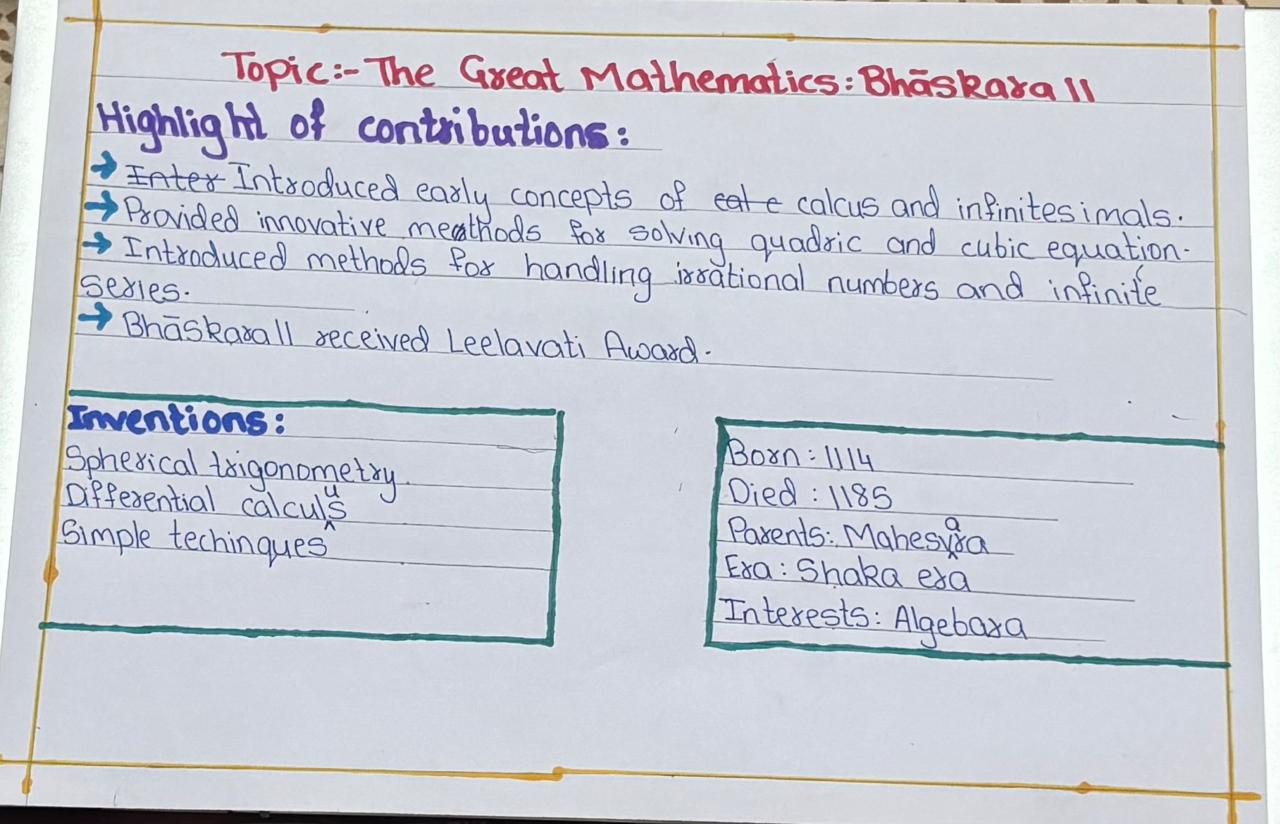 Topic:- The Great Mathematics: Bhāskara II
Highlight of contributions:
→ Inter Introduced early concepts of cal e calcus and infinitesimals.
→ Provided innovative methods for solving quadric and cubic equation.
→ Introduced methods for handling irrational numbers and infinite
series.
→ Bhāskara II received Leelavati Award.
Inventions:
Spherical trigonometry
Differential calculus
Simple techinques
Born: 1114
Died: 1185
Parents: Mahesvara
Era: Shaka era
Interests: Algebara